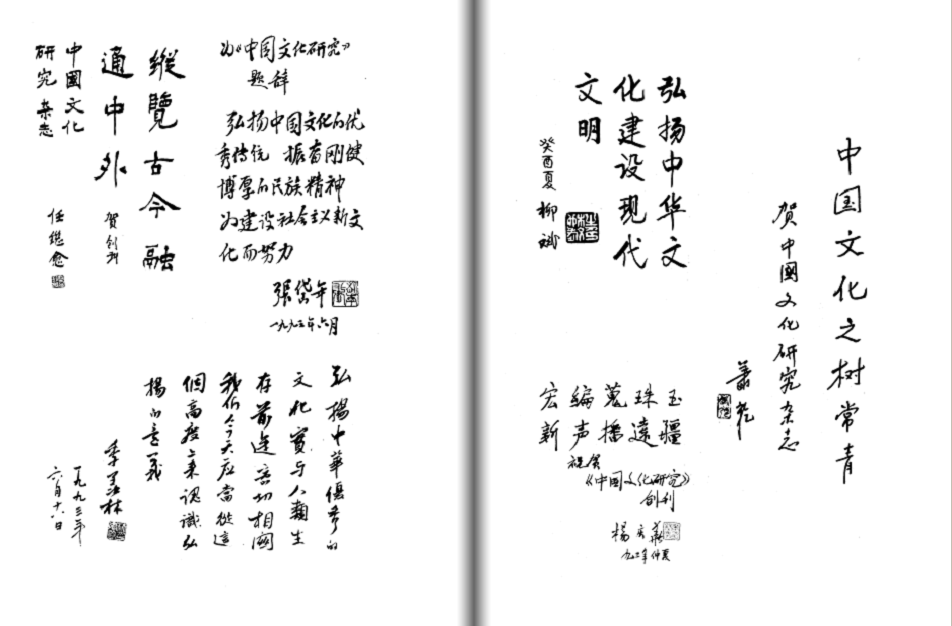 为《中国文化研究》
题辞
弘扬中国文化的优
秀传统 振奋刚健
博厚的民族精神
为建设社会主义新文
化而努力
張岱年
一九九三年六月
縱覽古今融
通中外
贺创刊
中國文化
研究杂志
任继愈
弘揚中華優秀的
文化實与人類生
存前途密切相関
我们今天应當從這
個高度上来認識弘
揚的意義
季羨林
一九九三年
六月十八日
中国文化之树常青
贺中國文化研究杂志
萧乾
弘扬中华文
化建设现代
文明
癸酉夏 柳斌
宏编蒐珠玉
新声播遠疆
祝贺
《中国文化研究》
创刊
楊
九三年仲夏